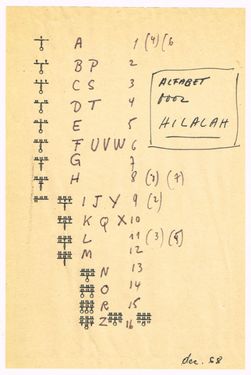 A 1 (4) (6
B P 2
C S 3
D T 4
E 5
F U V W 6
G 7
H 8 (3) (7)
I J Y 9 (2)
K Q X 10
L 11 (3) (8)
M 12
N 13
O 14
R 15
Z 16
ALFABET
VOOR
HILALAH
dec. 88